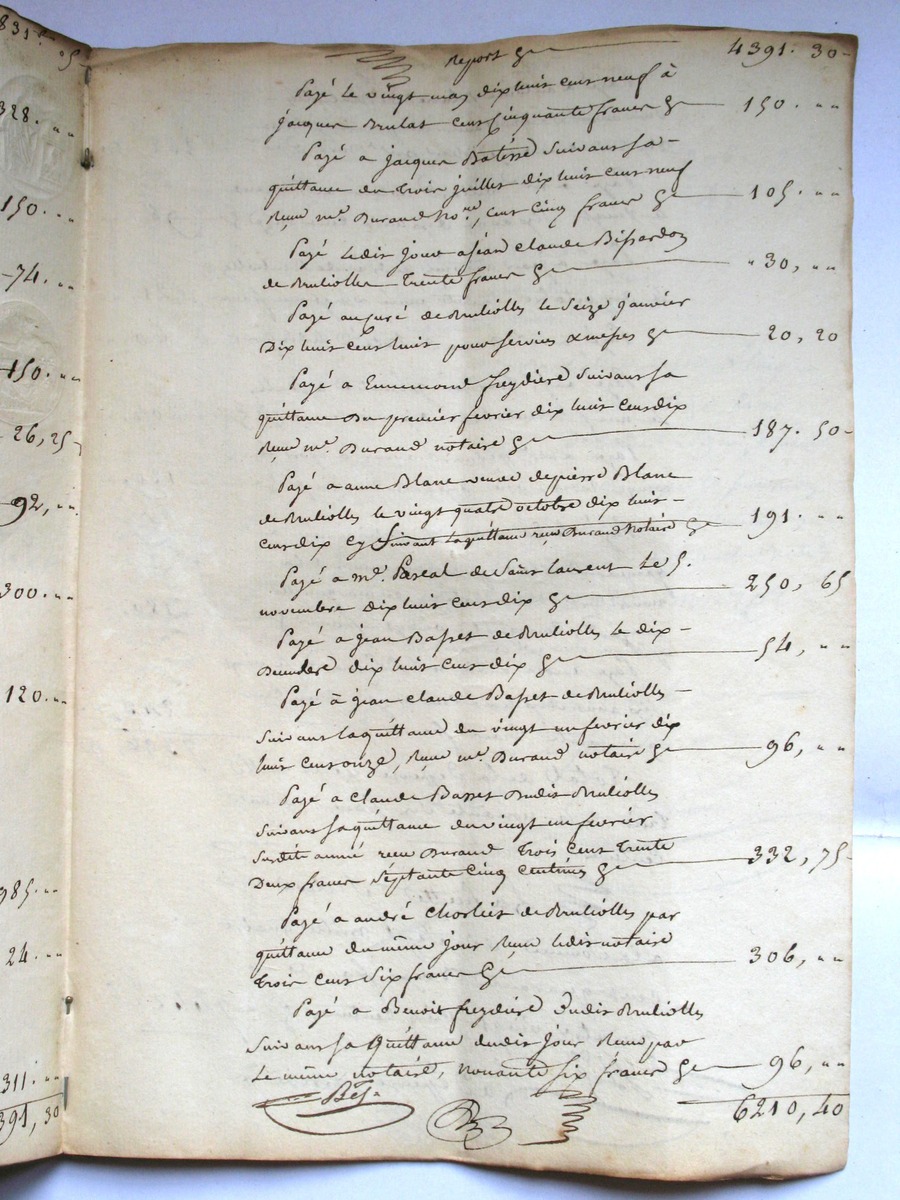 831 · 25
328 · "
150 · "
74 · "
150 · "
26, 25
92, "
300 · "
120 · "
985 · "
24 · "
311 · "
391, 30
Report cy 4391 · 30
Payé le vingt may dix huit cent neuf à
jacques Brulat cent cinquante francs cy 150 · "
Payé a jacques Batisse suivant sa
quittance du trois juillet dix huit cent neuf
Reçue me. Durand nore, cent cinq francs cy 105 · "
Payé ledit jour a jean claude Bissardon
de Rulliolles trente francs cy " 30, "
Payé au curé de Rulliolles le seize janvier
Dix huit cent huit pour services & messes cy 20, 20
Payé a Ennemond freydiere suivant sa
quittance Du premier fevrier dix huit cent dix
Reçue me. Durand notaire cy 187 · 50
Payé a anne Blanc veuve de pierre Blanc
de Rulliolles le vingt quatre octobre dix huit
cent dix cy suivant la quittance reçue Durand Notaire cy 191 · "
Payé a me. Pascal de Saint laurent le 5.
novembre dix huit cent dix cy 250, 65
Payé a jean Basset de Rulliolles le dix
Decembre dix huit cent dix cy 54, "
Payé à jean claude Basset de Rulliolles
suivant la quittance du vingt un fevrier dix
huit cent onze, Reçue me. Durand notaire cy 96, "
Payé a claude Basset dudit Rulliolles
suivant sa quittance du vingt un fevrier
susdite année reçue Durand trois cent trente
Deux francs septante cinq centimes cy 332, 75
Payé a andré Chorliet de Rulliolles par
quittance du même jour Reçue ledit notaire
trois cent six francs cy 306, "
Payé a Benoit freydiere dudit Rulliolles
suivant sa quittance dudit jour Reçue par
le même notaire, nonante six francs cy 96, "
6210, 40